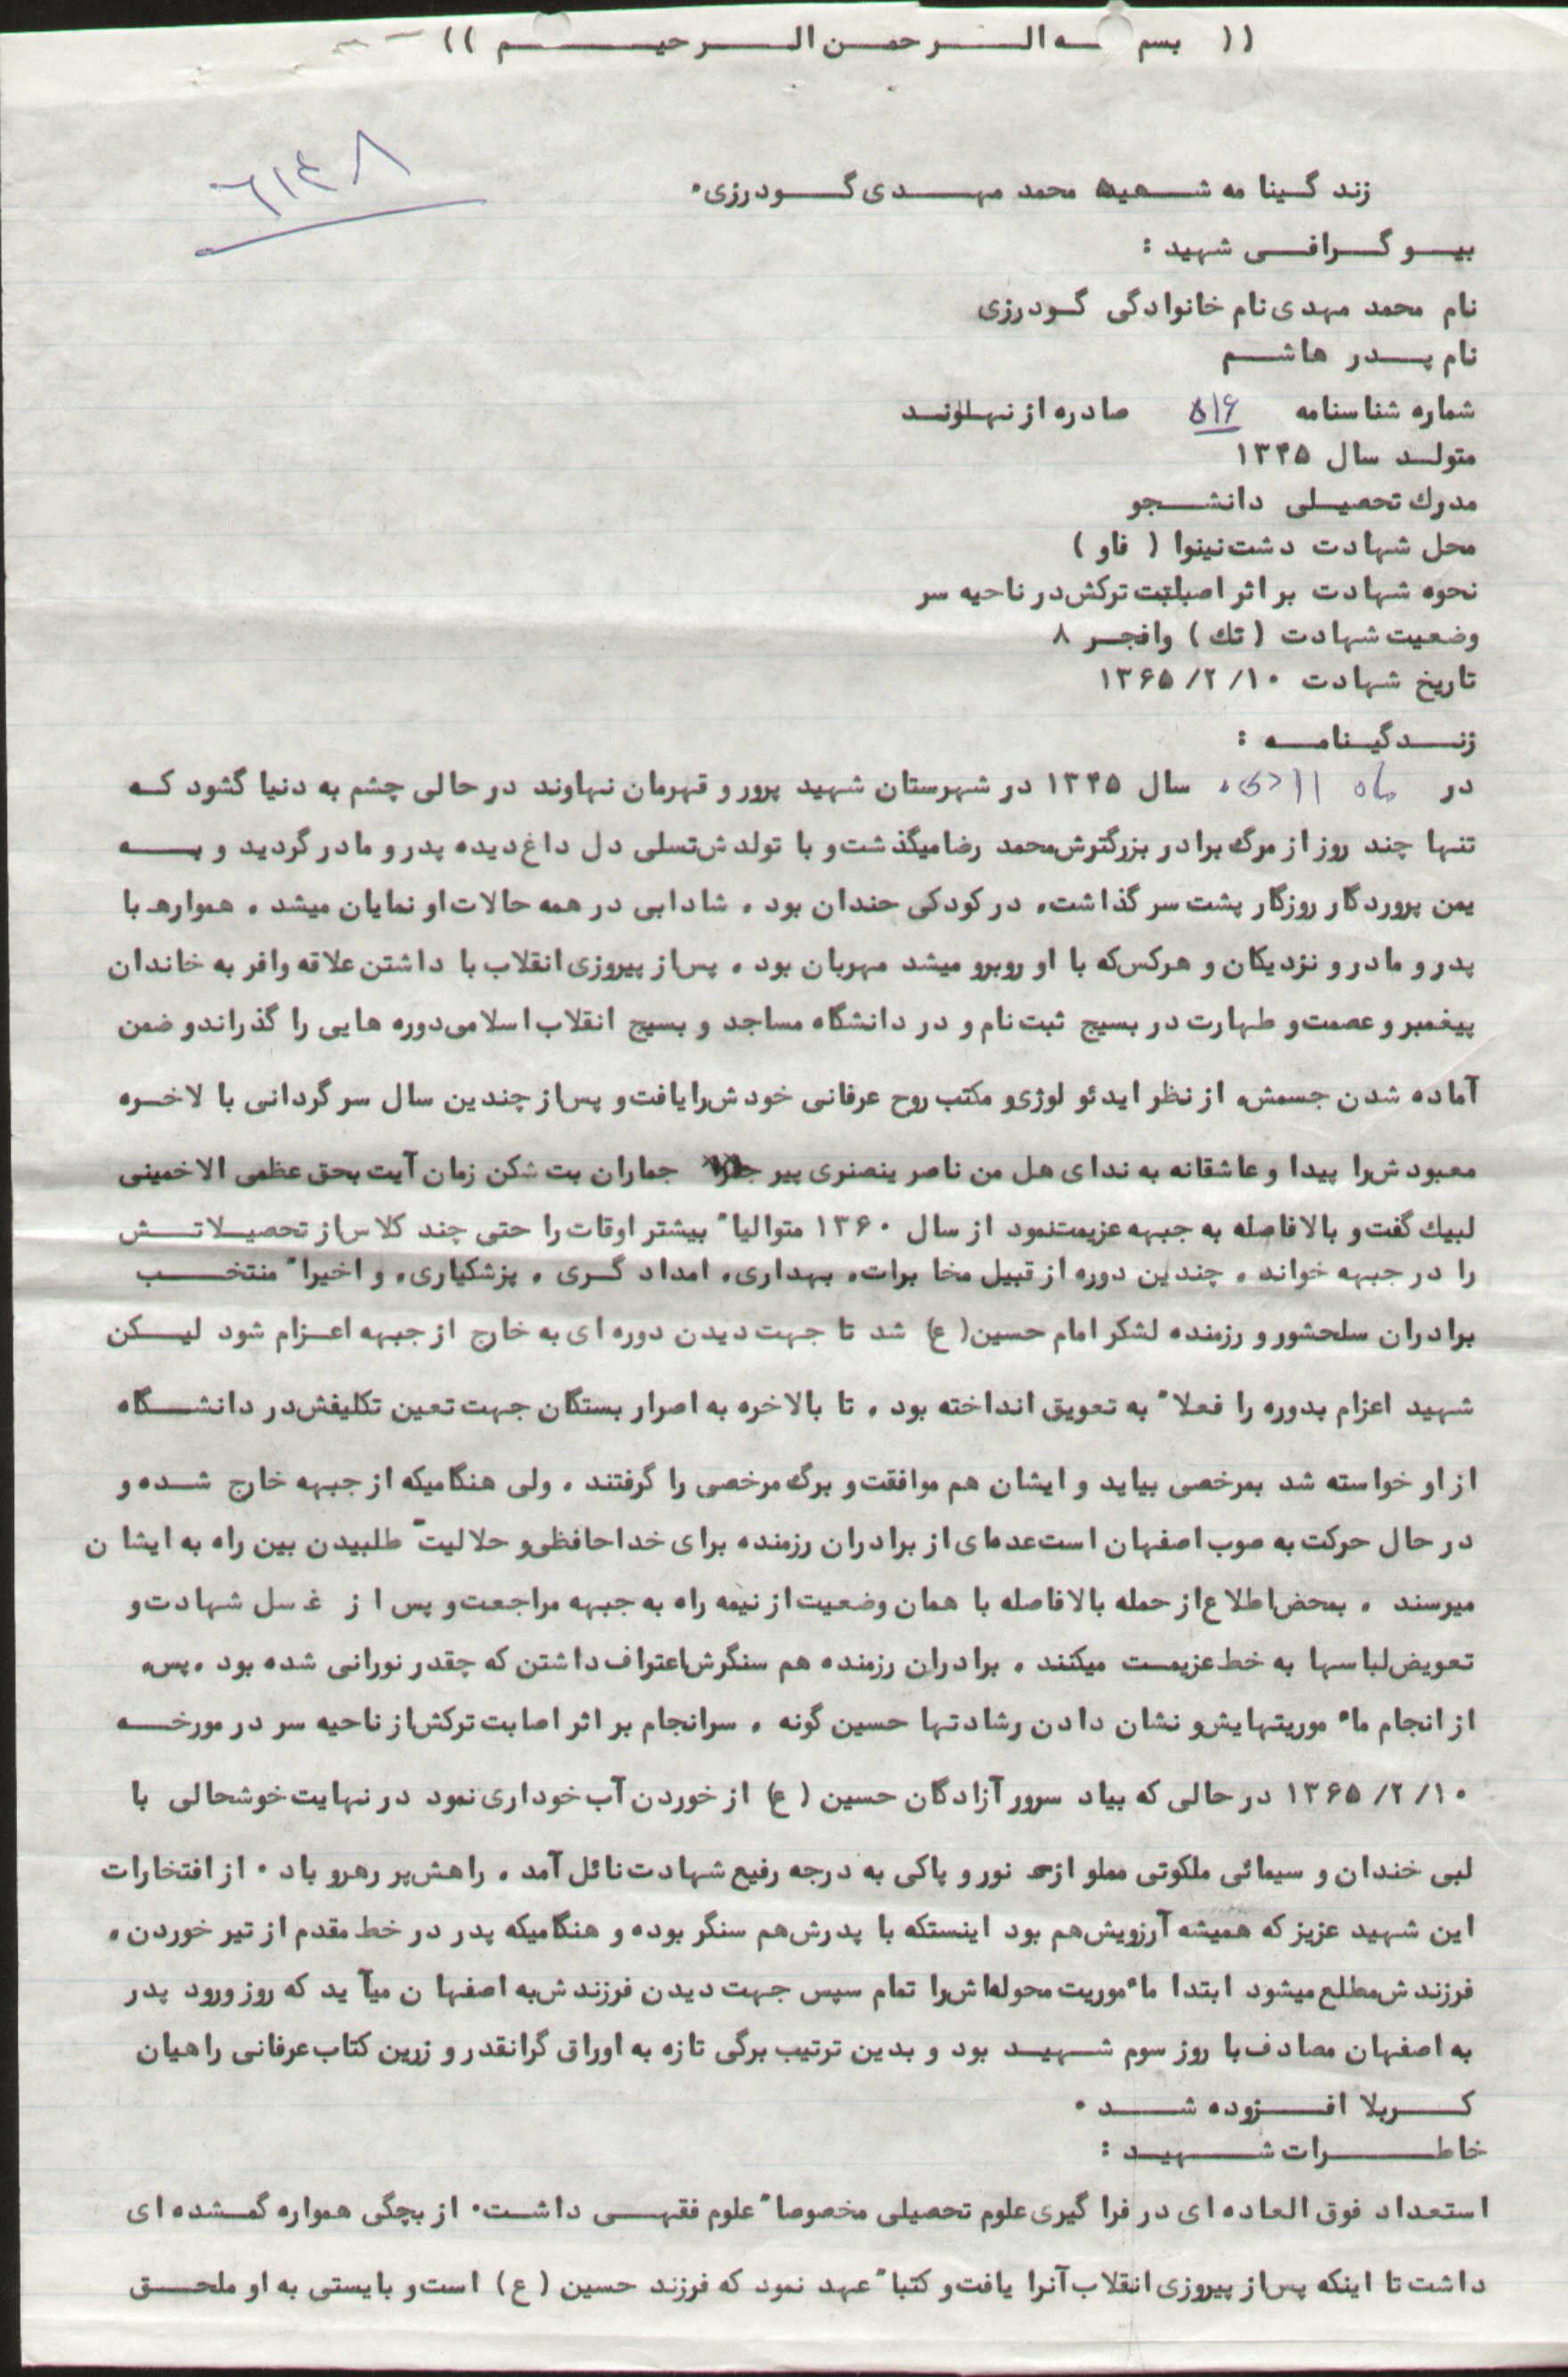 (( بسم ـه الـرحمـن الـرحیـم ))
۶۱۴۸
زندگینامه شهید محمد مهدی گودرزی.
بیوگرافی شهید :
نام محمد مهدی نام خانوادگی گودرزی
نام پدر هاشم
شماره شناسنامه ۵۱۶ صادره از نهاوند
متولد سال ۱۳۴۵
مدرك تحصیلی دانشجو
محل شهادت دشت نینوا ( فاو )
نحوه شهادت بر اثر اصابت ترکش در ناحیه سر
وضعیت شهادت ( تك ) وافجر ۸
تاریخ شهادت ۱۳۶۵/۲/۱۰
زندگینامه :
در ماه ۱۱ دی، سال ۱۳۴۵ در شهرستان شهید پرور و قهرمان نهاوند در حالی چشم به دنیا گشود که
تنها چند روز از مرگ برادر بزرگترش محمد رضا میگذشت و با تولدش تسلی دل داغ دیده پدر و مادر گردید و به
یمن پروردگار روزگار پشت سر گذاشت، در کودکی حندان بود . شادابی در همه حالات او نمایان میشد . همواره با
پدر و مادر و نزدیکان و هرکس که با او روبرو میشد مهربان بود . پس از پیروزی انقلاب با داشتن علاقه وافر به خاندان
پیغمبر و عصمت و طهارت در بسیج ثبت نام و در دانشگاه مساجد و بسیج انقلاب اسلامی دوره هایی را گذراند و ضمن
آماده شدن جسمش، از نظر ایدئولوژی و مکتب روح عرفانی خودش را یافت و پس از چندین سال سرگردانی با لاخره
معبودش را پیدا و عاشقانه به ندای هل من ناصر ینصنری پیر جماران بت شکن زمان آیت بحق عظمی الاخمینی
لبیك گفت و بالافاصله به جبهه عزیمت نمود از سال ۱۳۶۰ متوالیا" بیشتر اوقات را حتی چند کلاس از تحصیلاتش
را در جبهه خواند . چندین دوره از قبیل مخابرات، بهداری، امدادگری ، پزشکیاری، و اخیرا" منتخب
برادران سلحشور و رزمنده لشکر امام حسین (ع) شد تا جهت دیدن دوره ای به خارج از جبهه اعزام شود لیکن
شهید اعزام بدوره را فعلا" به تعویق انداخته بود . تا بالاخره به اصرار بستگان جهت تعین تکلیفش در دانشگاه
از او خواسته شد بمرخصی بیاید و ایشان هم موافقت و برگ مرخصی را گرفتند . ولی هنگامیکه از جبهه خارج شده و
در حال حرکت به صوب اصفهان است عده‌ای از برادران رزمنده برای خداحافظی و حلالیت طلبیدن بین راه به ایشان
میرسند . بمحض اطلاع از حمله بالافاصله با همان وضعیت از نیمه راه به جبهه مراجعت و پس از غسل شهادت و
تعویض لباسها به خط عزیمت میکنند . برادران رزمنده هم سنگرش اعتراف داشتن که چقدر نورانی شده بود . پس،
از انجام ماء موریتهایش و نشان دادن رشادتها حسین گونه . سرانجام بر اثر اصابت ترکش از ناحیه سر در مورخه
۱۳۶۵/۲/۱۰ در حالی که بیاد سرور آزادگان حسین (ع) از خوردن آب خوداری نمود در نهایت خوشحالی با
لبی خندان و سیمائی ملکوتی مملو از نور و پاکی به درجه رفیع شهادت نائل آمد . راهش پر رهرو باد . از افتخارات
این شهید عزیز که همیشه آرزویش هم بود اینستکه با پدرش هم سنگر بوده و هنگامیکه پدر در خط مقدم از تیر خوردن،
فرزندش مطلع میشود ابتدا ماء موریت محوله‌اش را تمام سپس جهت دیدن فرزندش به اصفهان میآید که روز ورود پدر
به اصفهان مصادف با روز سوم شهید بود و بدین ترتیب برگی تازه به اوراق گرانقدر و زرین کتاب عرفانی راهیان
کربلا افزوده شد .
خاطرات شهید :
استعداد فوق العاده ای در فراگیری علوم تحصیلی مخصوصا" علوم فقهی داشت. از بچگی همواره گمشده ای
داشت تا اینکه پس از پیروزی انقلاب آنرا یافت و کتبا" عهد نمود که فرزند حسین (ع) است و بایستی به او ملحق